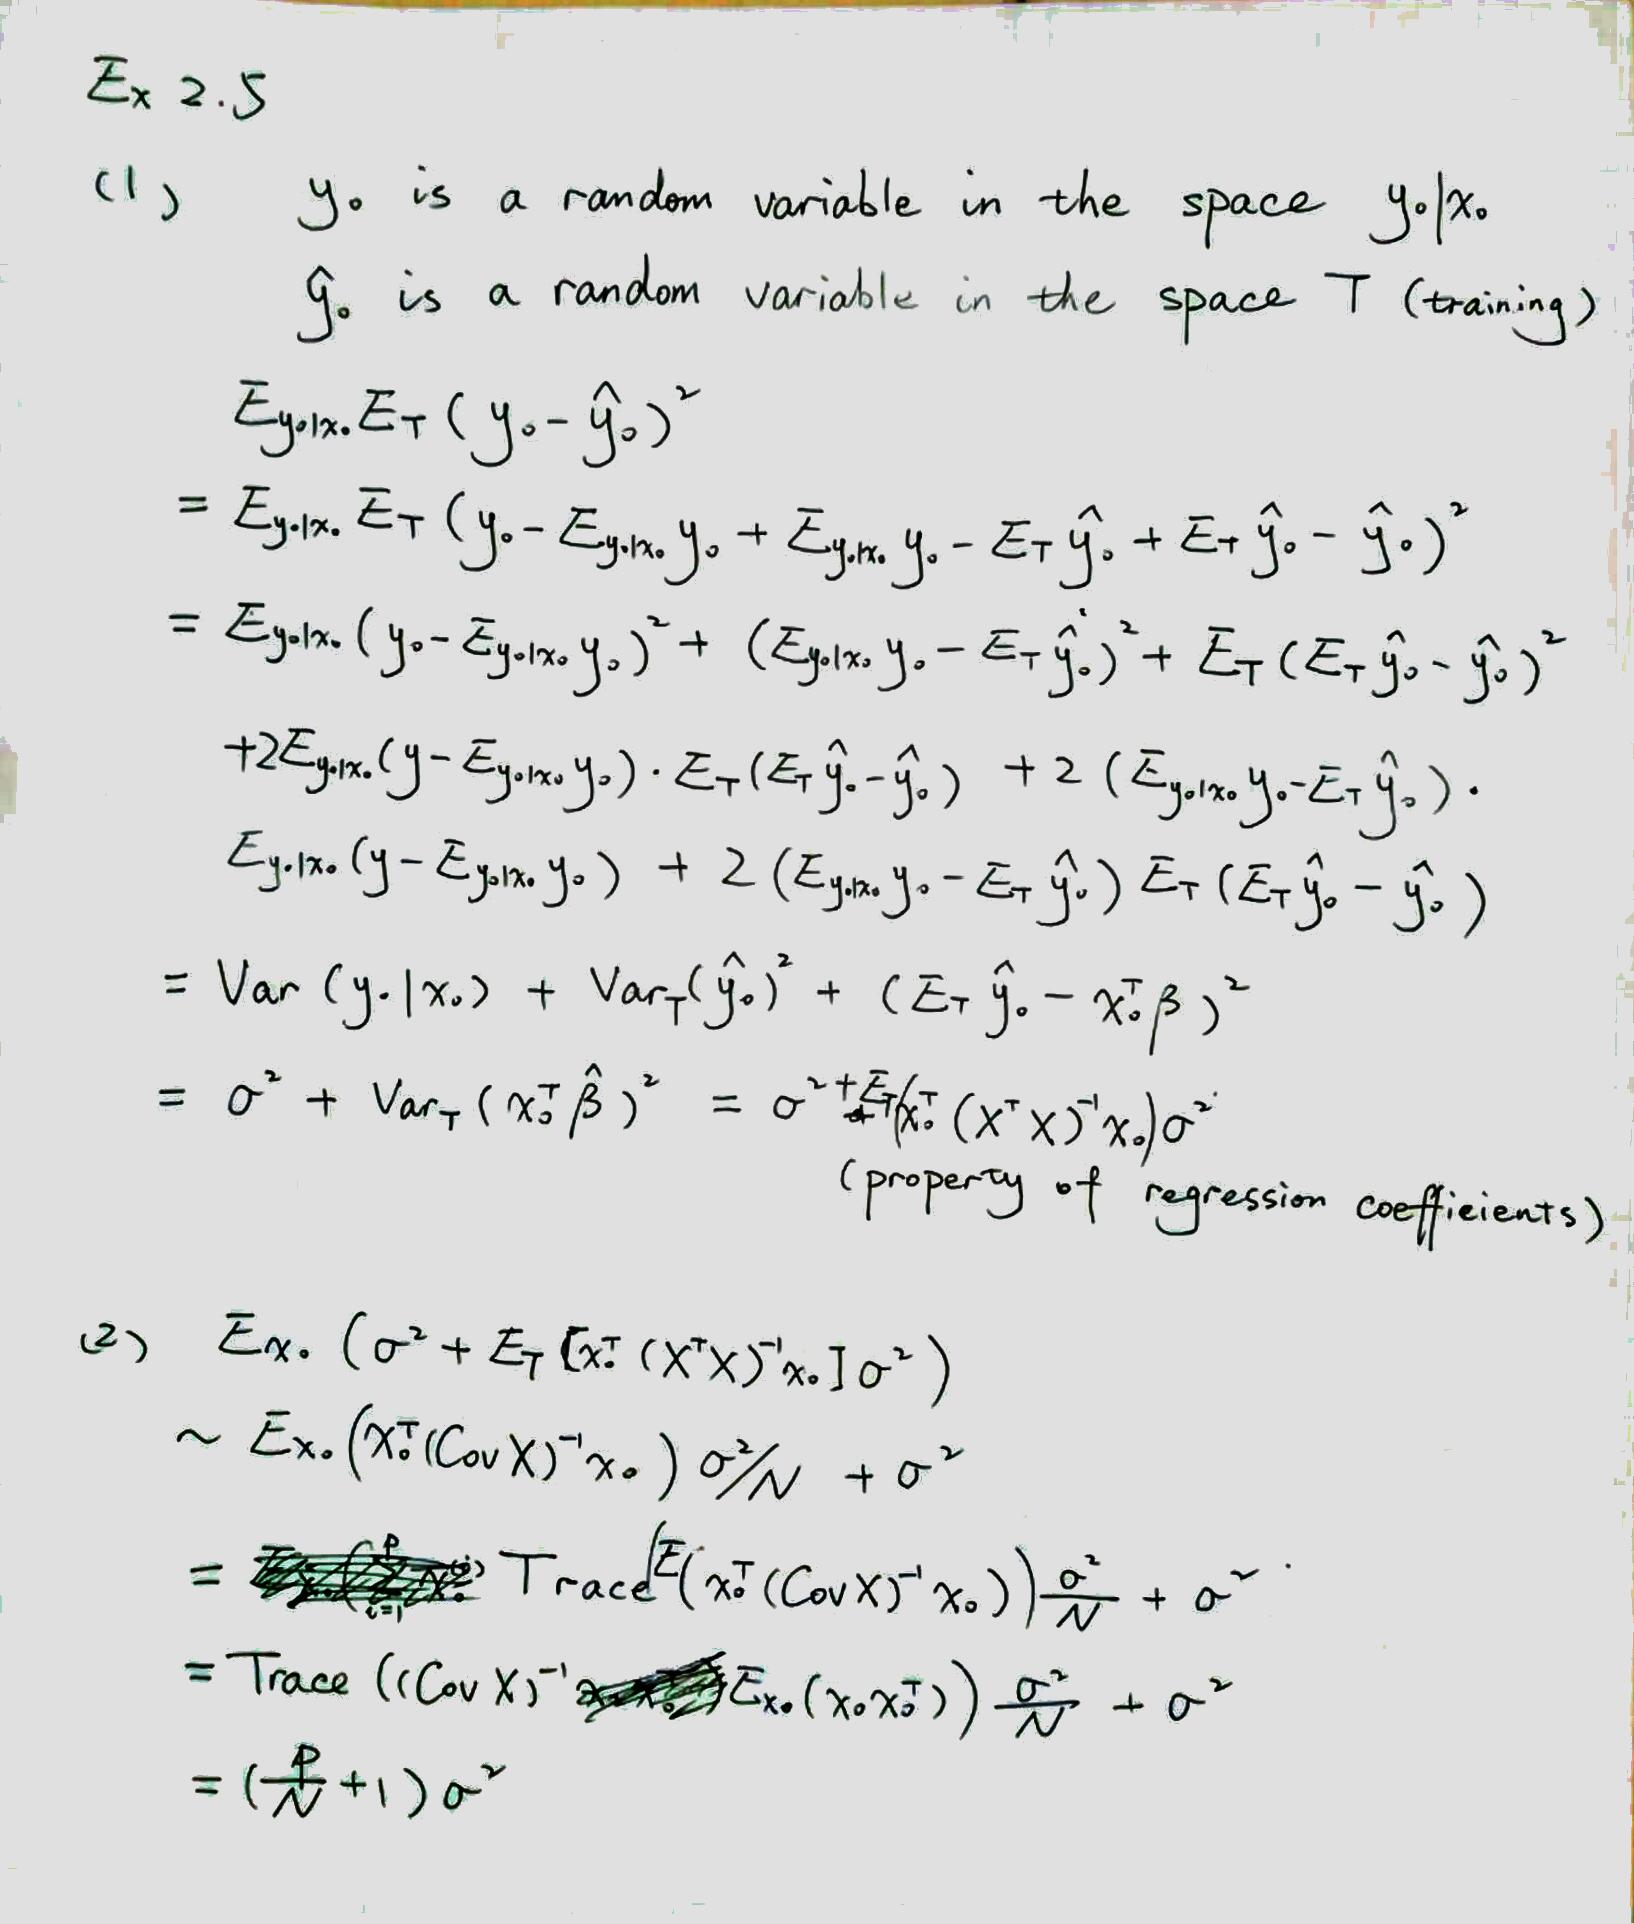 Ex 2.5
(1) y₀ is a random variable in the space y₀|x₀
ŷ₀ is a random variable in the space T (training)
E_{y₀|x₀} E_T (y₀ - ŷ₀)²
= E_{y₀|x₀} E_T (y₀ - E_{y₀|x₀} y₀ + E_{y₀|x₀} y₀ - E_T ŷ₀ + E_T ŷ₀ - ŷ₀)²
= E_{y₀|x₀} (y₀ - E_{y₀|x₀} y₀)² + (E_{y₀|x₀} y₀ - E_T ŷ₀)² + E_T (E_T ŷ₀ - ŷ₀)²
+2E_{y₀|x₀} (y - E_{y₀|x₀} y₀) · E_T (E_T ŷ₀ - ŷ₀) + 2 (E_{y₀|x₀} y₀ - E_T ŷ₀) ·
E_{y₀|x₀} (y - E_{y₀|x₀} y₀) + 2 (E_{y₀|x₀} y₀ - E_T ŷ₀) E_T (E_T ŷ₀ - ŷ₀)
= Var (y₀|x₀) + Var_T (ŷ₀)² + (E_T ŷ₀ - x₀ᵀβ)²
= σ² + Var_T (x₀ᵀ β̂)² = σ² + E_T(x₀ᵀ (XᵀX)⁻¹ x₀)σ²
(property of regression coefficients)
(2) E_{x₀} (σ² + E_T [x₀ᵀ (XᵀX)⁻¹ x₀] σ²)
~ E_{x₀} (x₀ᵀ (Cov X)⁻¹ x₀) σ²/N + σ²
= Trace (E (x₀ᵀ (Cov X)⁻¹ x₀)) σ²/N + σ²
= Trace ((Cov X)⁻¹ E_{x₀} (x₀x₀ᵀ)) σ²/N + σ²
= (P/N + 1) σ²